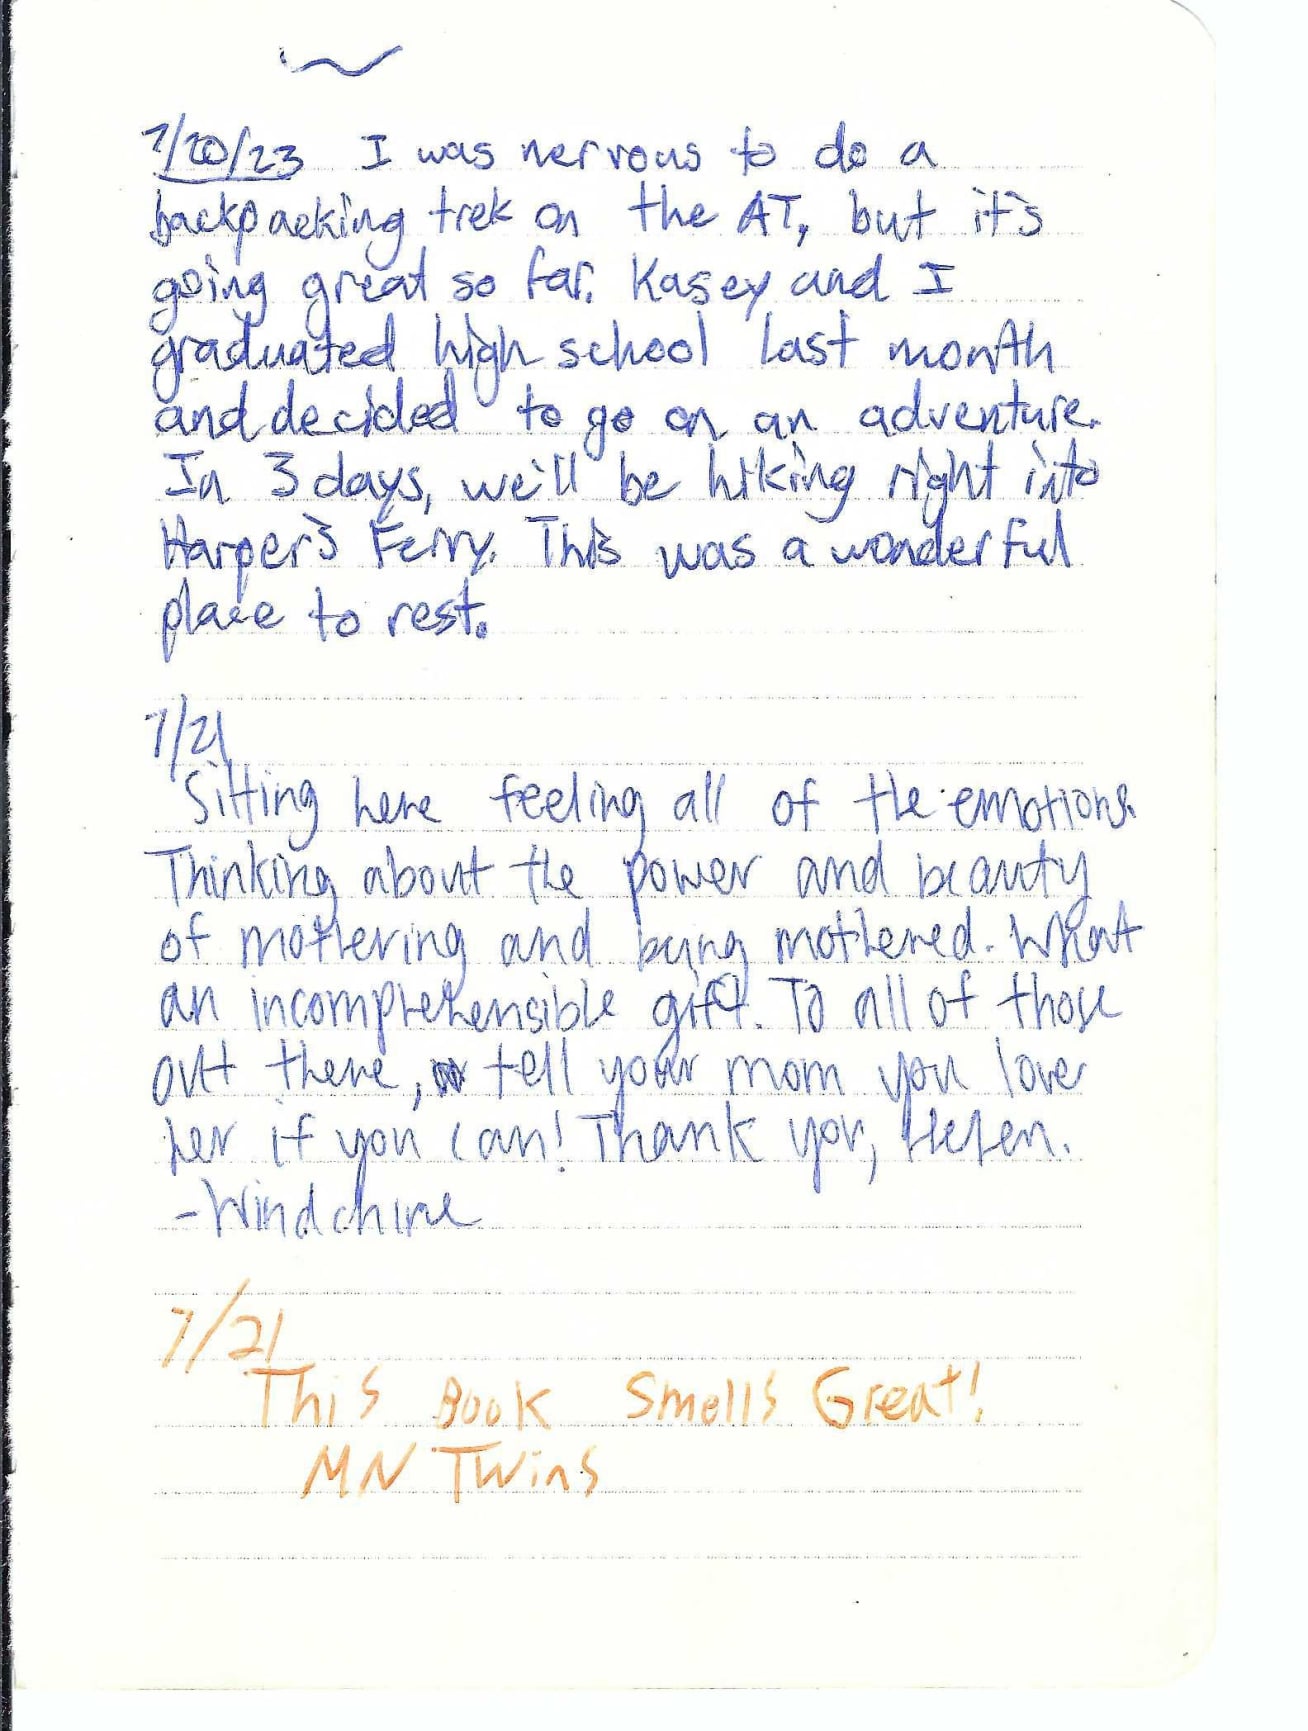 7/20/23 I was nervous to do a
backpacking trek on the AT, but it's
going great so far. Kasey and I
graduated high school last month
and decided to go on an adventure.
In 3 days, we'll be hiking right into
Harper's Ferry. This was a wonderful
place to rest.
7/21
Sitting here feeling all of the emotions.
Thinking about the power and beauty
of mothering and being mothered. What
an incomprehensible gift. To all of those
out there, tell your mom you love
her if you can! Thank you, Helen.
-Windchime
7/21
This Book Smells Great!
MN Twins